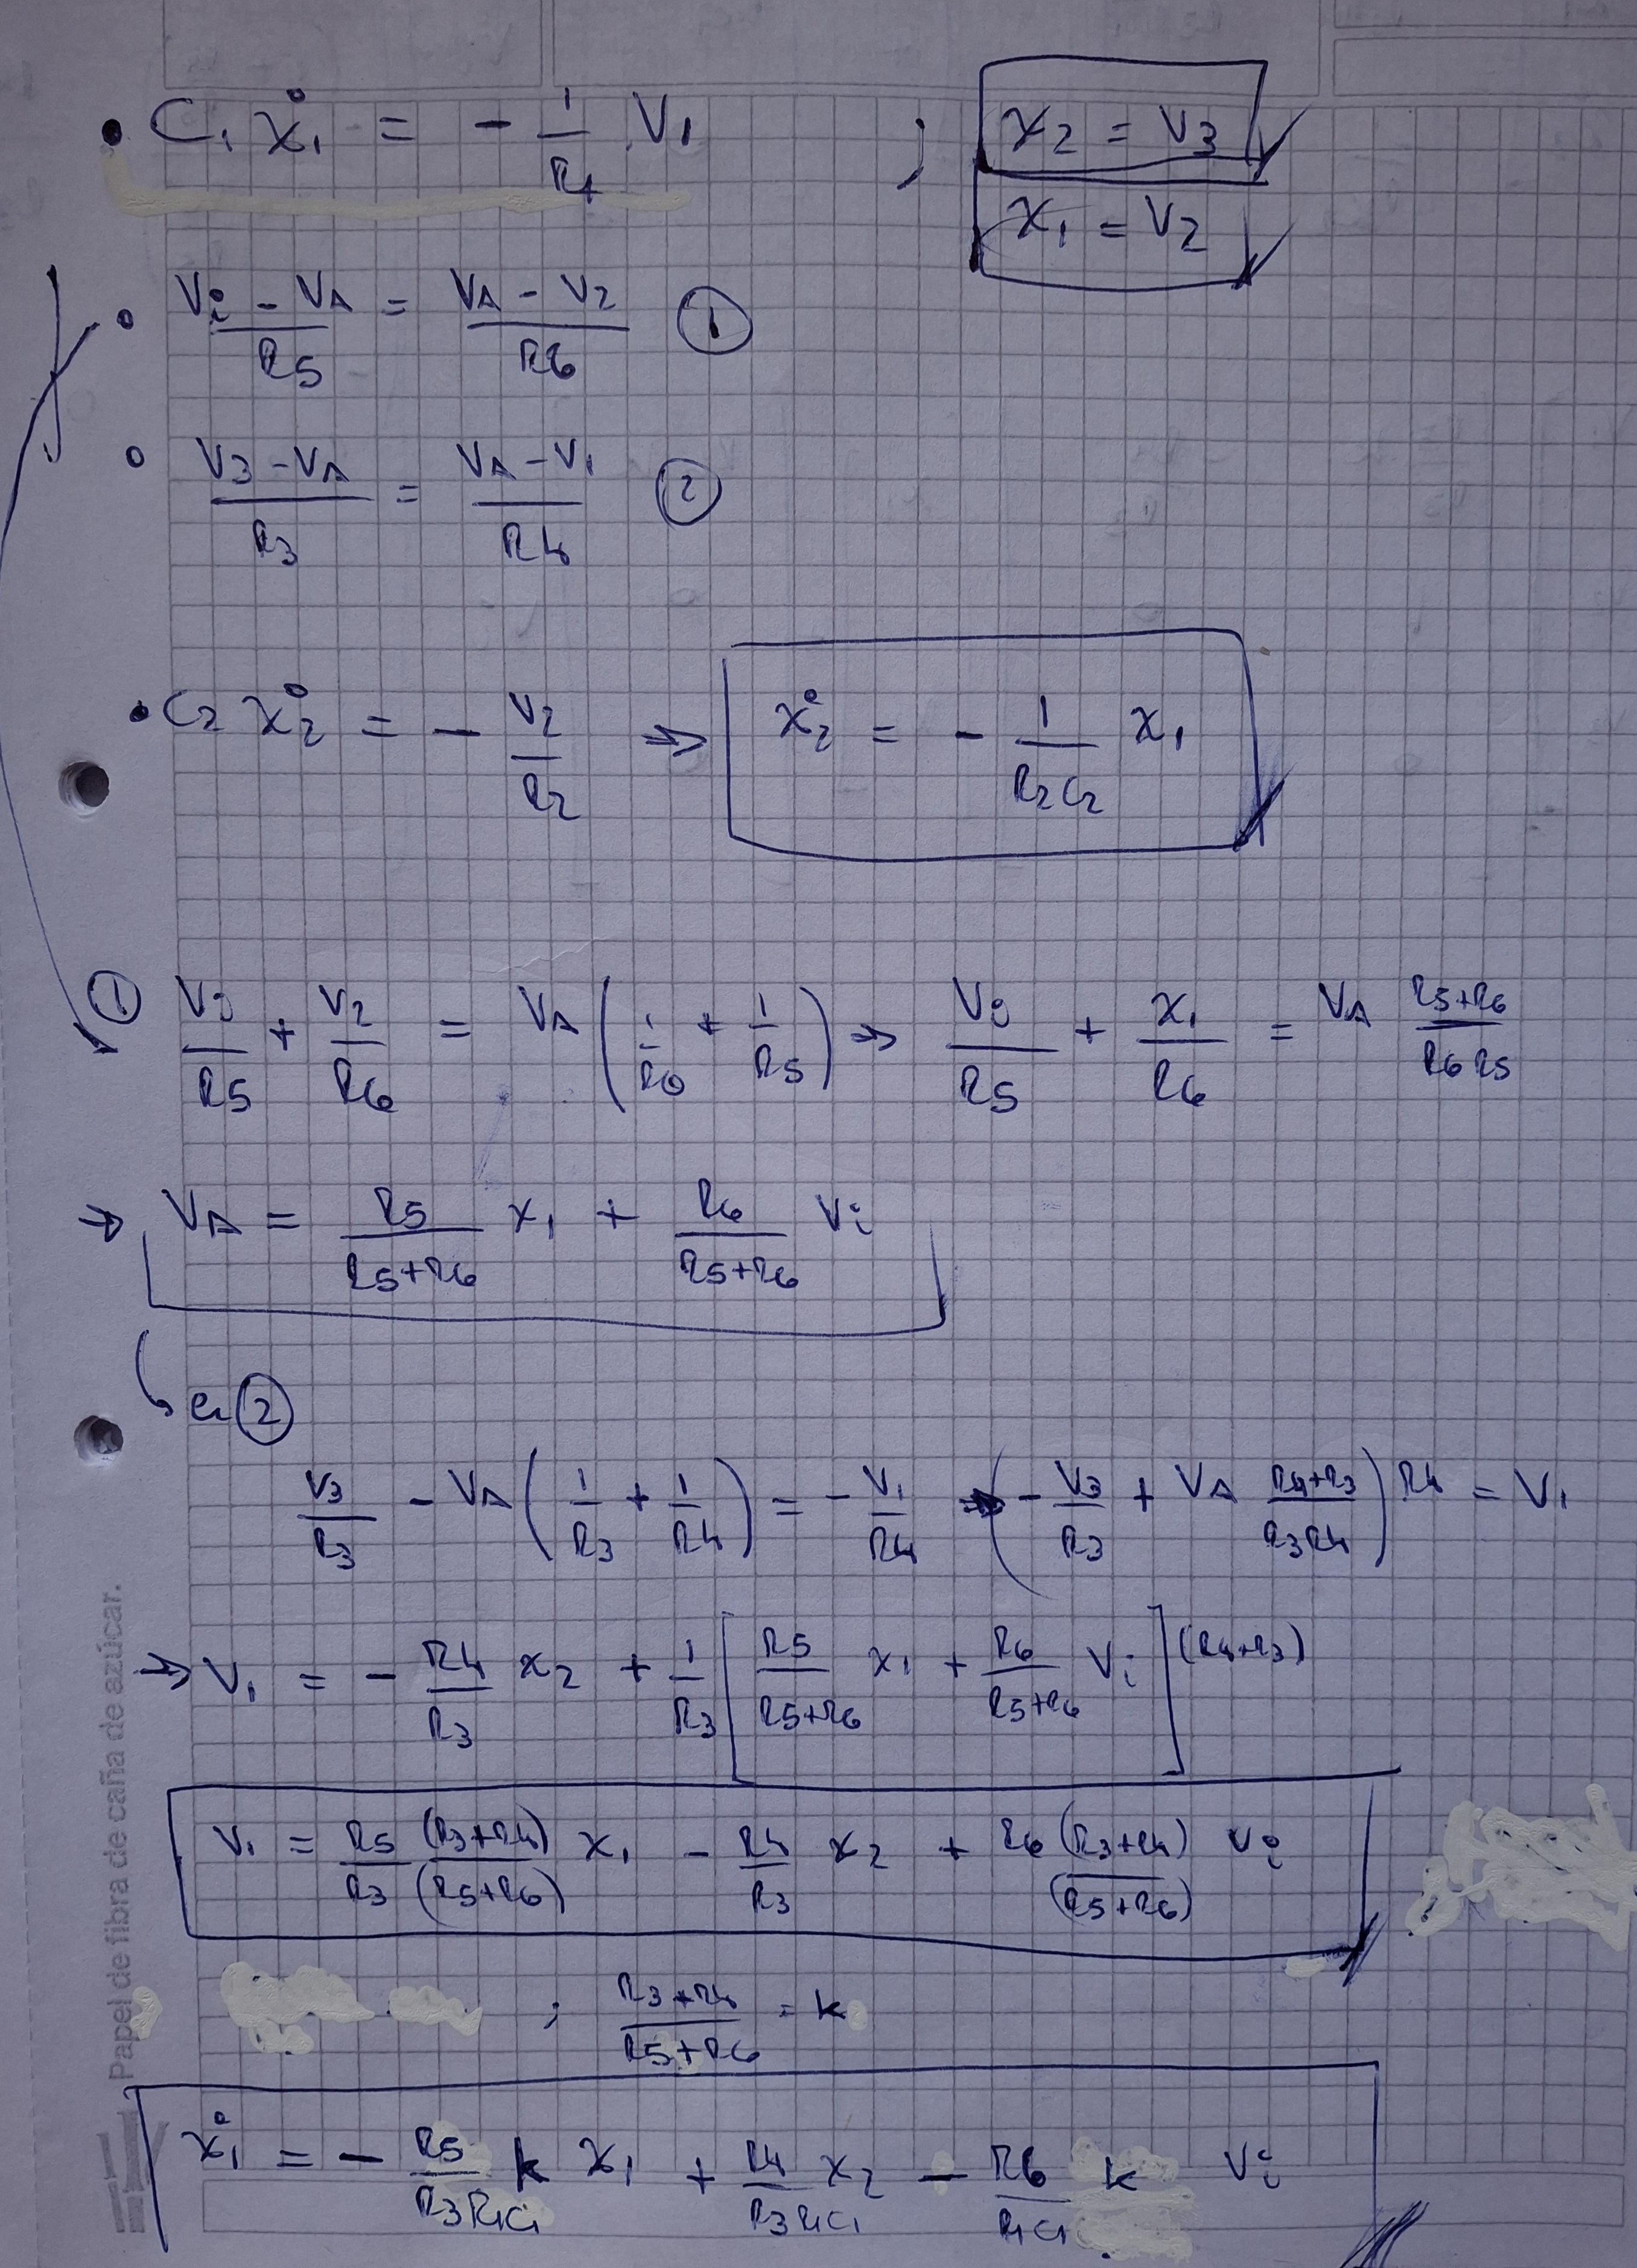 • C₁ ẋ₁ = - 1/R₁ V₁ ; x₂ = V₃
x₁ = V₂
• (Vi - VA)/R5 = (VA - V2)/R6 ①
• (V3 - VA)/R3 = (VA - V1)/R4 ②
• C2 ẋ2 = - V2/R2 ⇒ ẋ2 = - 1/(R2 C2) x1
① Vi/R5 + V2/R6 = VA (1/R6 + 1/R5) → Vi/R5 + x1/R6 = VA (R5+R6)/(R6 R5)
→ VA = R5/(R5+R6) x1 + R6/(R5+R6) Vi
en ②
V3/R3 - VA (1/R3 + 1/R4) = - V1/R4 → (- V3/R3 + VA (R4+R3)/(R3R4)) R4 = V1
→ V1 = - R4/R3 x2 + 1/R3 [R5/(R5+R6) x1 + R6/(R5+R6) Vi] (R4+R3)
V1 = R5/R3 (R3+R4)/(R5+R6) x1 - R4/R3 x2 + R6 (R3+R4)/(R5+R6) Vi
; (R3+R4)/(R5+R6) = k
ẋ1 = - R5/(R3R1C1) k x1 + R4/(R3R1C1) x2 - R6/(R1C1) k Vi
Papel de fibra de caña de azúcar.